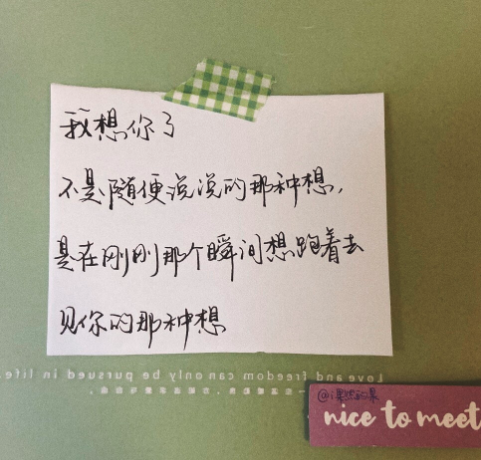 我想你了
不是随便说说的那种想,
是在刚刚那个瞬间想跑着去
见你的那种想
Love and freedom can only be pursued in life.
nice to meet